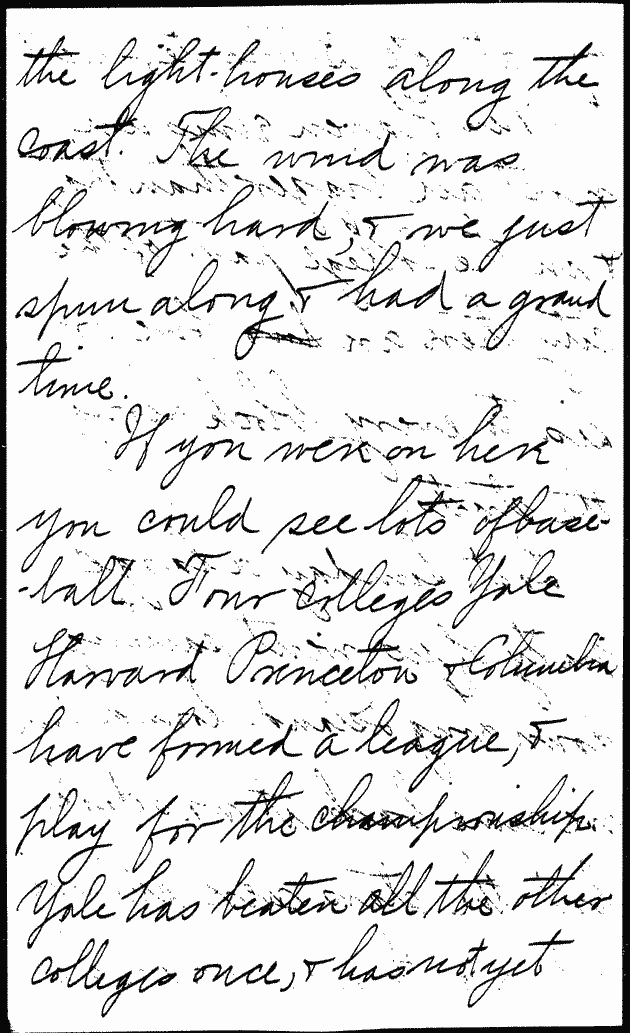 the light-houses along the
coast. The wind was
blowing hard, & we just
spun along & had a grand
time.
If you were on here
you could see lots of base-
-ball. Four colleges Yale
Harvard Princeton & Columbia
have formed a league, &
play for the championship.
Yale has beaten all the other
colleges once, & has not yet